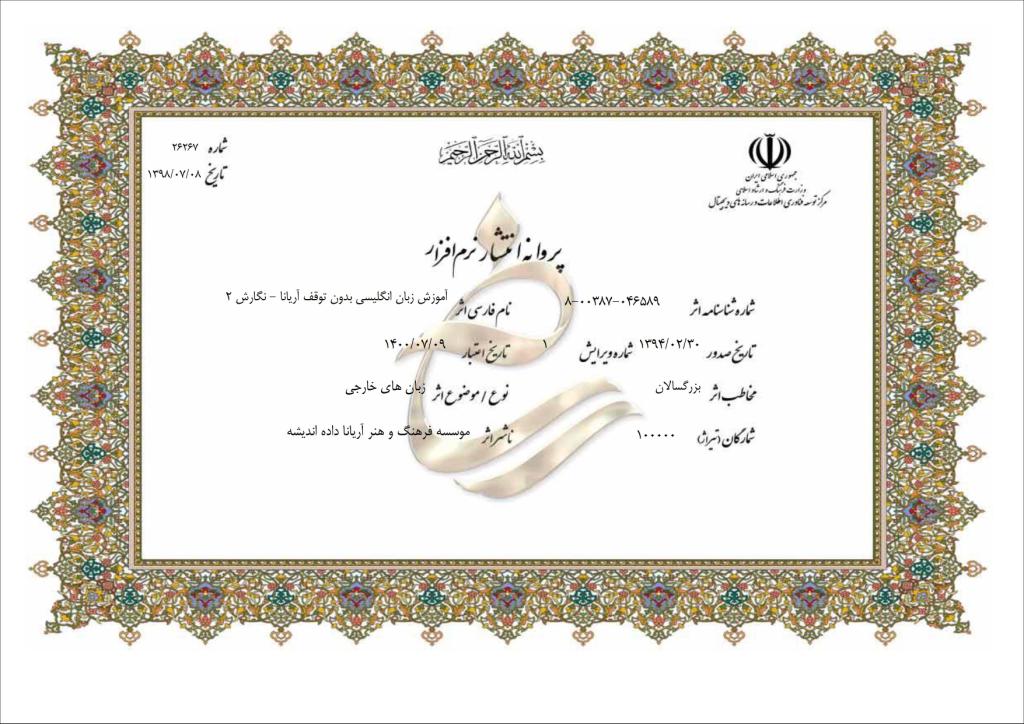 بسم الله الرحمن الرحیم
جمهوری اسلامی ایران
وزارت فرهنگ و ارشاد اسلامی
مرکز توسعه فناوری اطلاعات و رسانه های دیجیتال
شماره ۲۶۲۶۷
تاریخ ۱۳۹۸/۰۷/۰۸
پروانه انتشار نرم افزار
شماره شناسنامه اثر ۸-۰۰۳۸۷-۰۴۶۵۸۹ نام فارسی اثر آموزش زبان انگلیسی بدون توقف آریانا - نگارش ۲
تاریخ صدور ۱۳۹۴/۰۲/۳۰ شماره ویرایش ۱ تاریخ اعتبار ۱۴۰۰/۰۷/۰۹
مخاطب اثر بزرگسالان نوع / موضوع اثر زبان های خارجی
شمارگان (تیراژ) ۱۰۰۰۰۰ ناشر اثر موسسه فرهنگ و هنر آریانا داده اندیشه